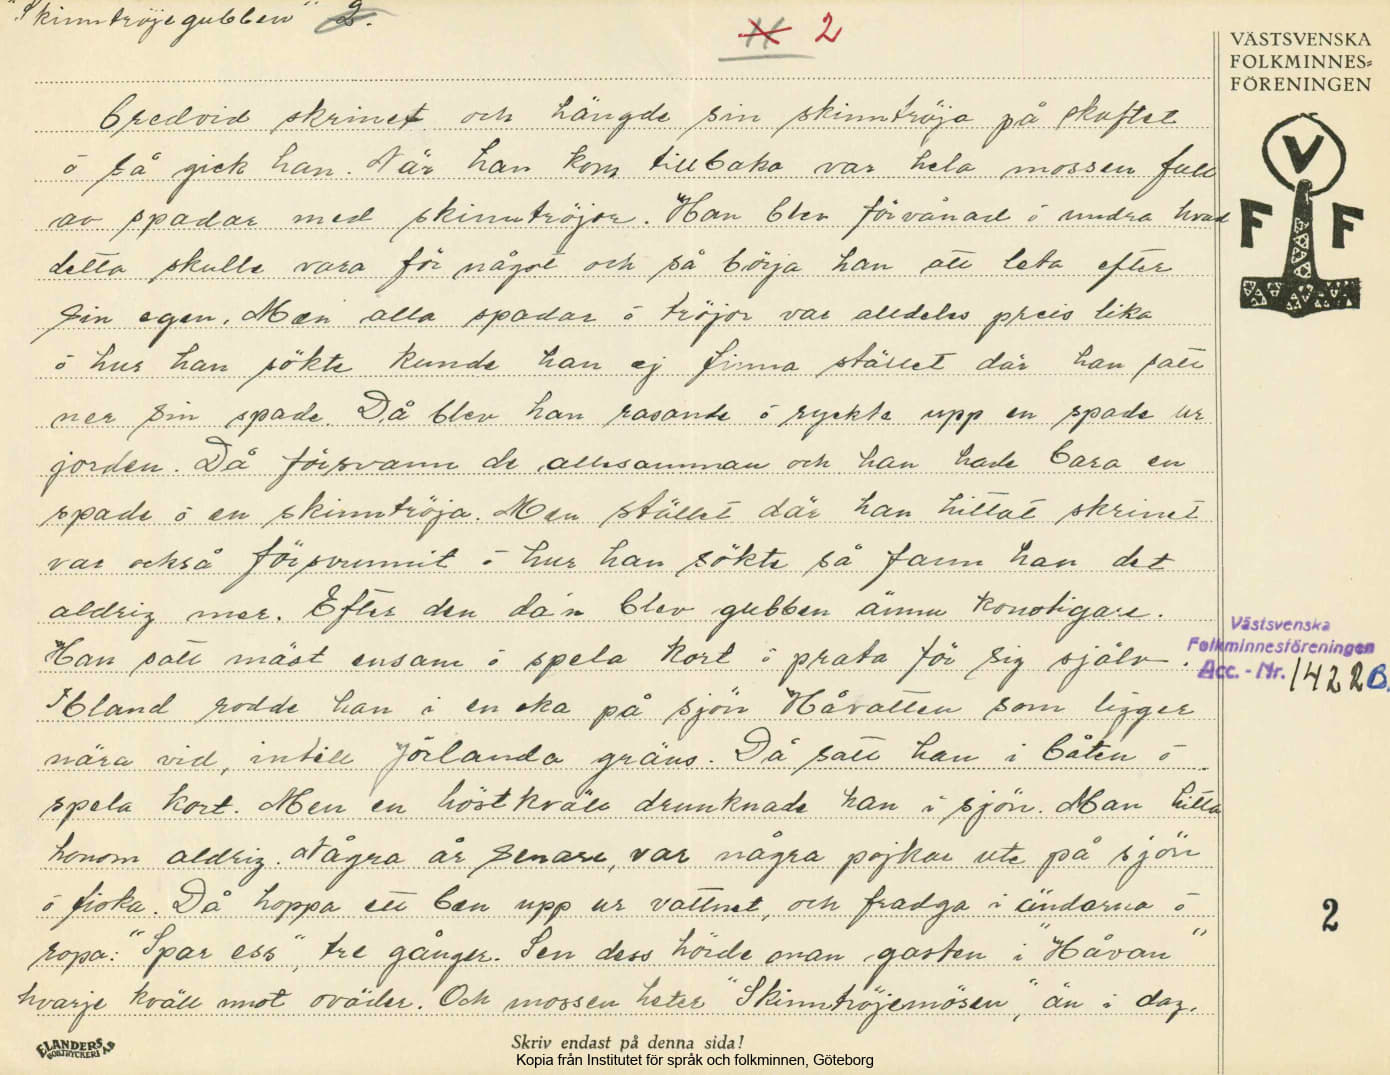 "Skinntröjegubben" 2.
11 2
VÄSTSVENSKA
FOLKMINNES-
FÖRENINGEN
V
F F
bredvid skrinet och hängde sin skinntröja på skaftet
ö så gick han. När han kom tillbaka var hela mossen full
av spadar med skinntröjor. Han blev förvånad ö undra hvad
detta skulle vara för något och så börja han att leta efter
sin egen. Men alla spadar ö tröjor var alldeles preis lika
ö hur han sökte kunde han ej finna stället där han satt
ner sin spade. Då blev han rasande ö ryckte upp en spade ur
jorden. Då försvann de allesamman och han hade bara en
spade ö en skinntröja. Men stället där han hittat skrinet
var också försvunnit ö hur han sökte så fann han det
aldrig mer. Efter den da'n blev gubben ännu konstigare.
Han satt mäst ensam ö spela kort ö prata för sig själv.
Ibland rodde han i en eka på sjön Håvatten som ligger
nära vid, intill Jörlanda gräns. Då satt han i båten ö
spela kort. Men en höstkväll drunknade han i sjön. Man hitta
honom aldrig. Några år senare, var några pojkar ute på sjön
ö fiska. Då hoppa ett ben upp ur vattnet, och fradga i ändarna ö
ropa: "Spar ess", tre gånger. Sen dess hörde man gasten i "Håvan"
hvarje kväll mot oväder. Och mossen heter "Skinntröjemösen", än i dag.
Västsvenska
Folkminnesföreningen
Acc.-Nr. 1422 B.
2
ELANDERS
BOKTRYCKERI AB
Skriv endast på denna sida!
Kopia från Institutet för språk och folkminnen, Göteborg